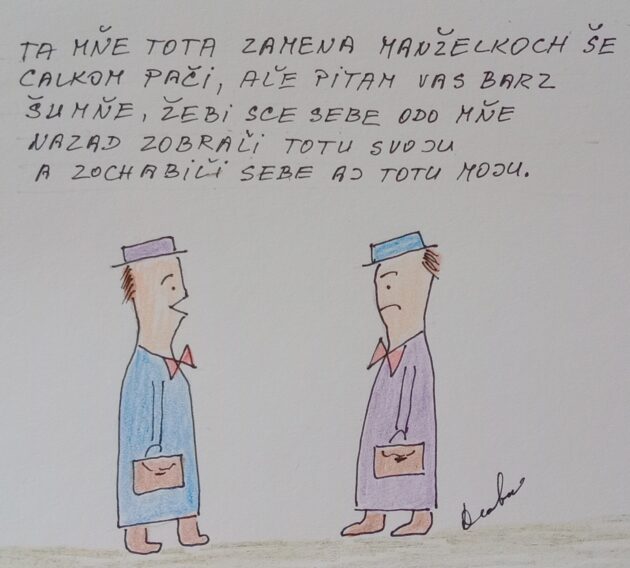 TA MŇE TOTA ZAMENA MANŽELKOCH ŠE
CALKOM PAČI, AĽE PITAM VAS BARZ
ŠUMŇE, ŽEBI SCE SEBE ODO MŇE
NAZAD ZOBRAĽI TOTU SVOJU
A ZOCHABIĽI SEBE AJ TOTU MOJU.